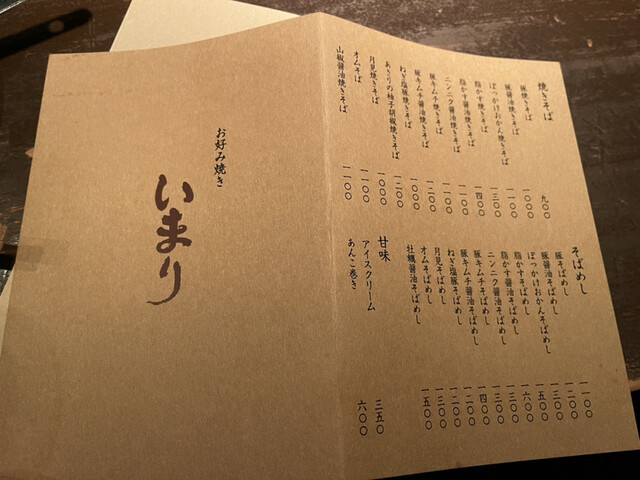 お好み焼き
いまり
焼きそば
豚焼きそば 九〇〇
豚焼きそば 一〇〇〇
豚醤油焼きそば 一一〇〇
ぼっかけおかん焼きそば 一三〇〇
脂かす焼きそば 一四〇〇
脂かす醤油焼きそば 一一〇〇
ニンニク醤油焼きそば 一一〇〇
豚キムチ焼きそば 一二〇〇
豚キムチ醤油焼きそば 一〇〇〇
ねぎ塩豚焼きそば 一二〇〇
あさりの柚子胡椒焼きそば 一〇〇〇
月見焼きそば 一一〇〇
オムそば 一一〇〇
山椒醤油焼きそば
そばめし
豚そばめし 一一〇〇
豚醤油そばめし 一二〇〇
ぼっかけおかんそばめし 一三〇〇
脂かすそばめし 一五〇〇
脂かす醤油そばめし 一六〇〇
ニンニク醤油そばめし 一三〇〇
豚キムチそばめし 一三〇〇
豚キムチ醤油そばめし 一四〇〇
ねぎ塩豚そばめし 一二〇〇
月見そばめし 一二〇〇
オムそばめし 一三〇〇
牡蠣醤油そばめし 一五〇〇
甘味
アイスクリーム 三五〇
あんこ巻き 六〇〇